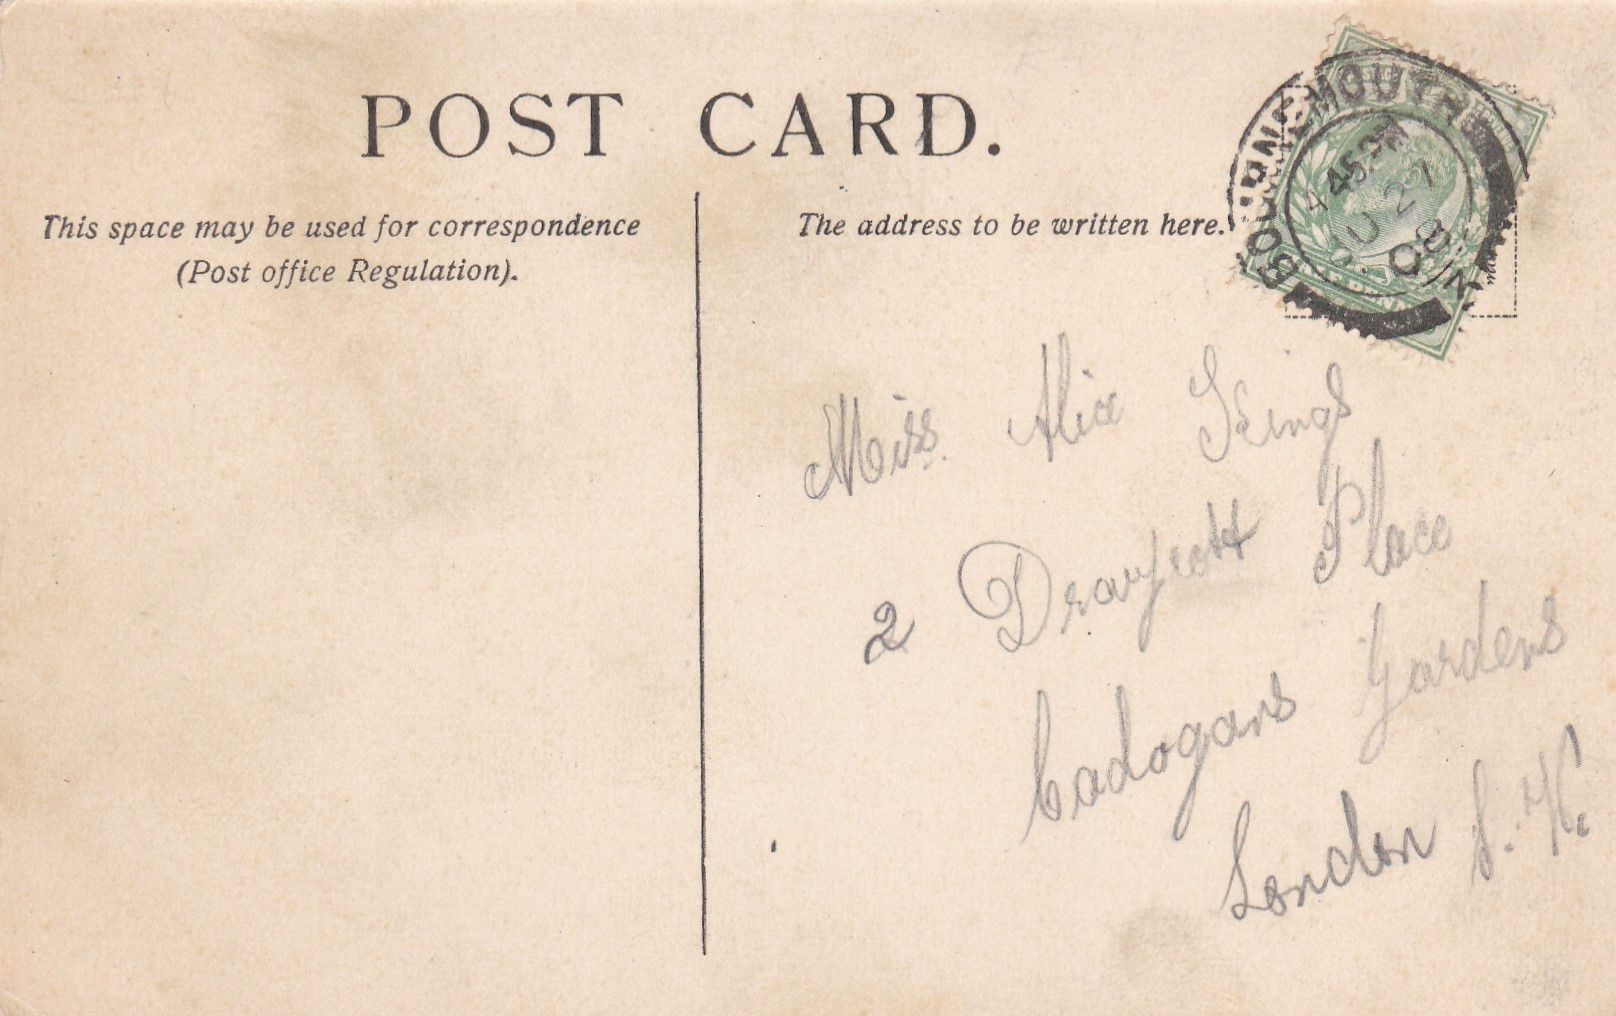 POST CARD.
This space may be used for correspondence
(Post office Regulation).
The address to be written here.
BOURNEMOUTH
4 45 PM
27
08
PENNY
Miss Alice Kings
2 Draycott Place
Cadogans Gardens
London S.W.